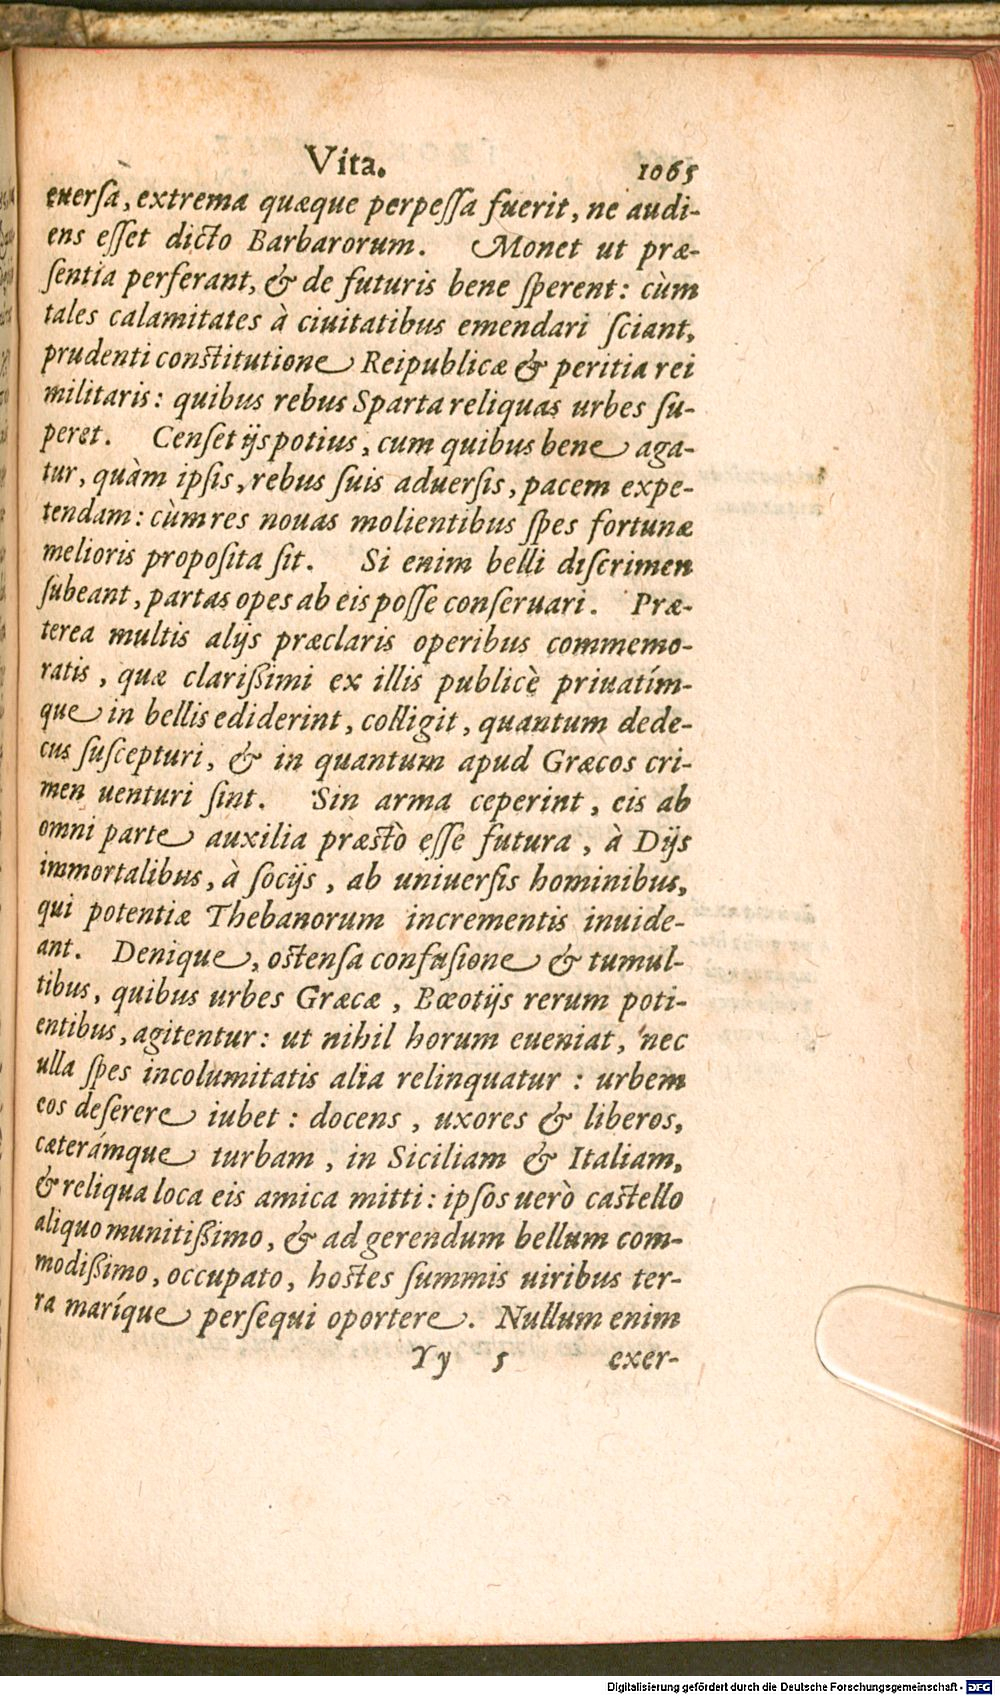 Vita. 1065
euersa, extrema quæque perpeſſa fuerit, ne audi-
ens eſſet dicto Barbarorum. Monet ut præ-
ſentia perferant, & de futuris bene ſperent: cùm
tales calamitates à ciuitatibus emendari ſciant,
prudenti constitutione Reipublicæ & peritia rei
militaris: quibus rebus Sparta reliquas urbes ſu-
peret. Cenſet ijs potius, cum quibus bene aga-
tur, quàm ipſis, rebus ſuis aduerſis, pacem expe-
tendam: cùm res nouas molientibus ſpes fortunæ
melioris propoſita ſit. Si enim belli diſcrimen
ſubeant, partas opes ab eis poſſe conſeruari. Præ-
terea multis alijs præclaris operibus commemo-
ratis, quæ clarißimi ex illis publicè priuatím-
que in bellis ediderint, colligit, quantum dede-
cus ſuſcepturi, & in quantum apud Græcos cri-
men uenturi ſint. Sin arma ceperint, eis ab
omni parte auxilia præstò eſſe futura, à Dijs
immortalibus, à ſocijs, ab uniuerſis hominibus,
qui potentiæ Thebanorum incrementis inuide-
ant. Denique, ostenſa confuſione & tumul-
tibus, quibus urbes Græcæ, Bœotijs rerum poti-
entibus, agitentur: ut nihil horum eueniat, nec
ulla ſpes incolumitatis alia relinquatur: urbem
eos deſerere iubet: docens, uxores & liberos,
cæterámque turbam, in Siciliam & Italiam,
& reliqua loca eis amica mitti: ipſos uerò castello
aliquo munitißimo, & ad gerendum bellum com-
modißimo, occupato, hostes ſummis uiribus ter-
ra maríque perſequi oportere. Nullum enim
Yy 5 exer-
Digitalisierung gefördert durch die Deutsche Forschungsgemeinschaft - DFG